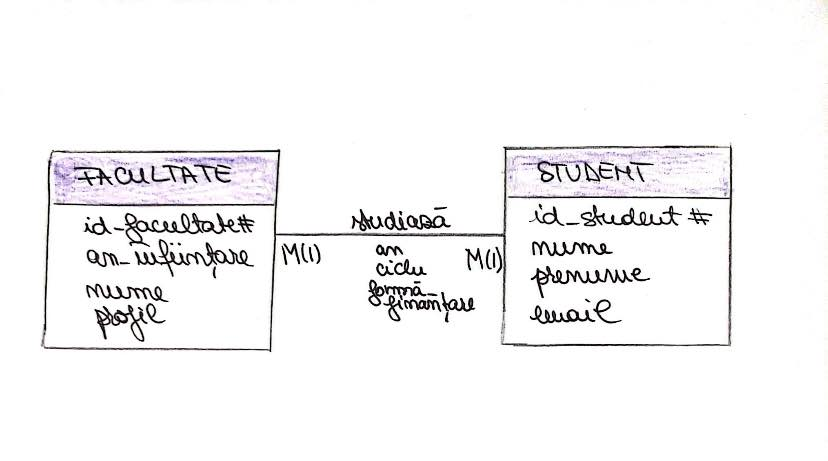 FACULTATE
id_facultate#
an_înființare
nume
profil
studiază
M(1)
an
ciclu
formă_
finanțare
M(1)
STUDENT
id_student #
nume
prenume
email